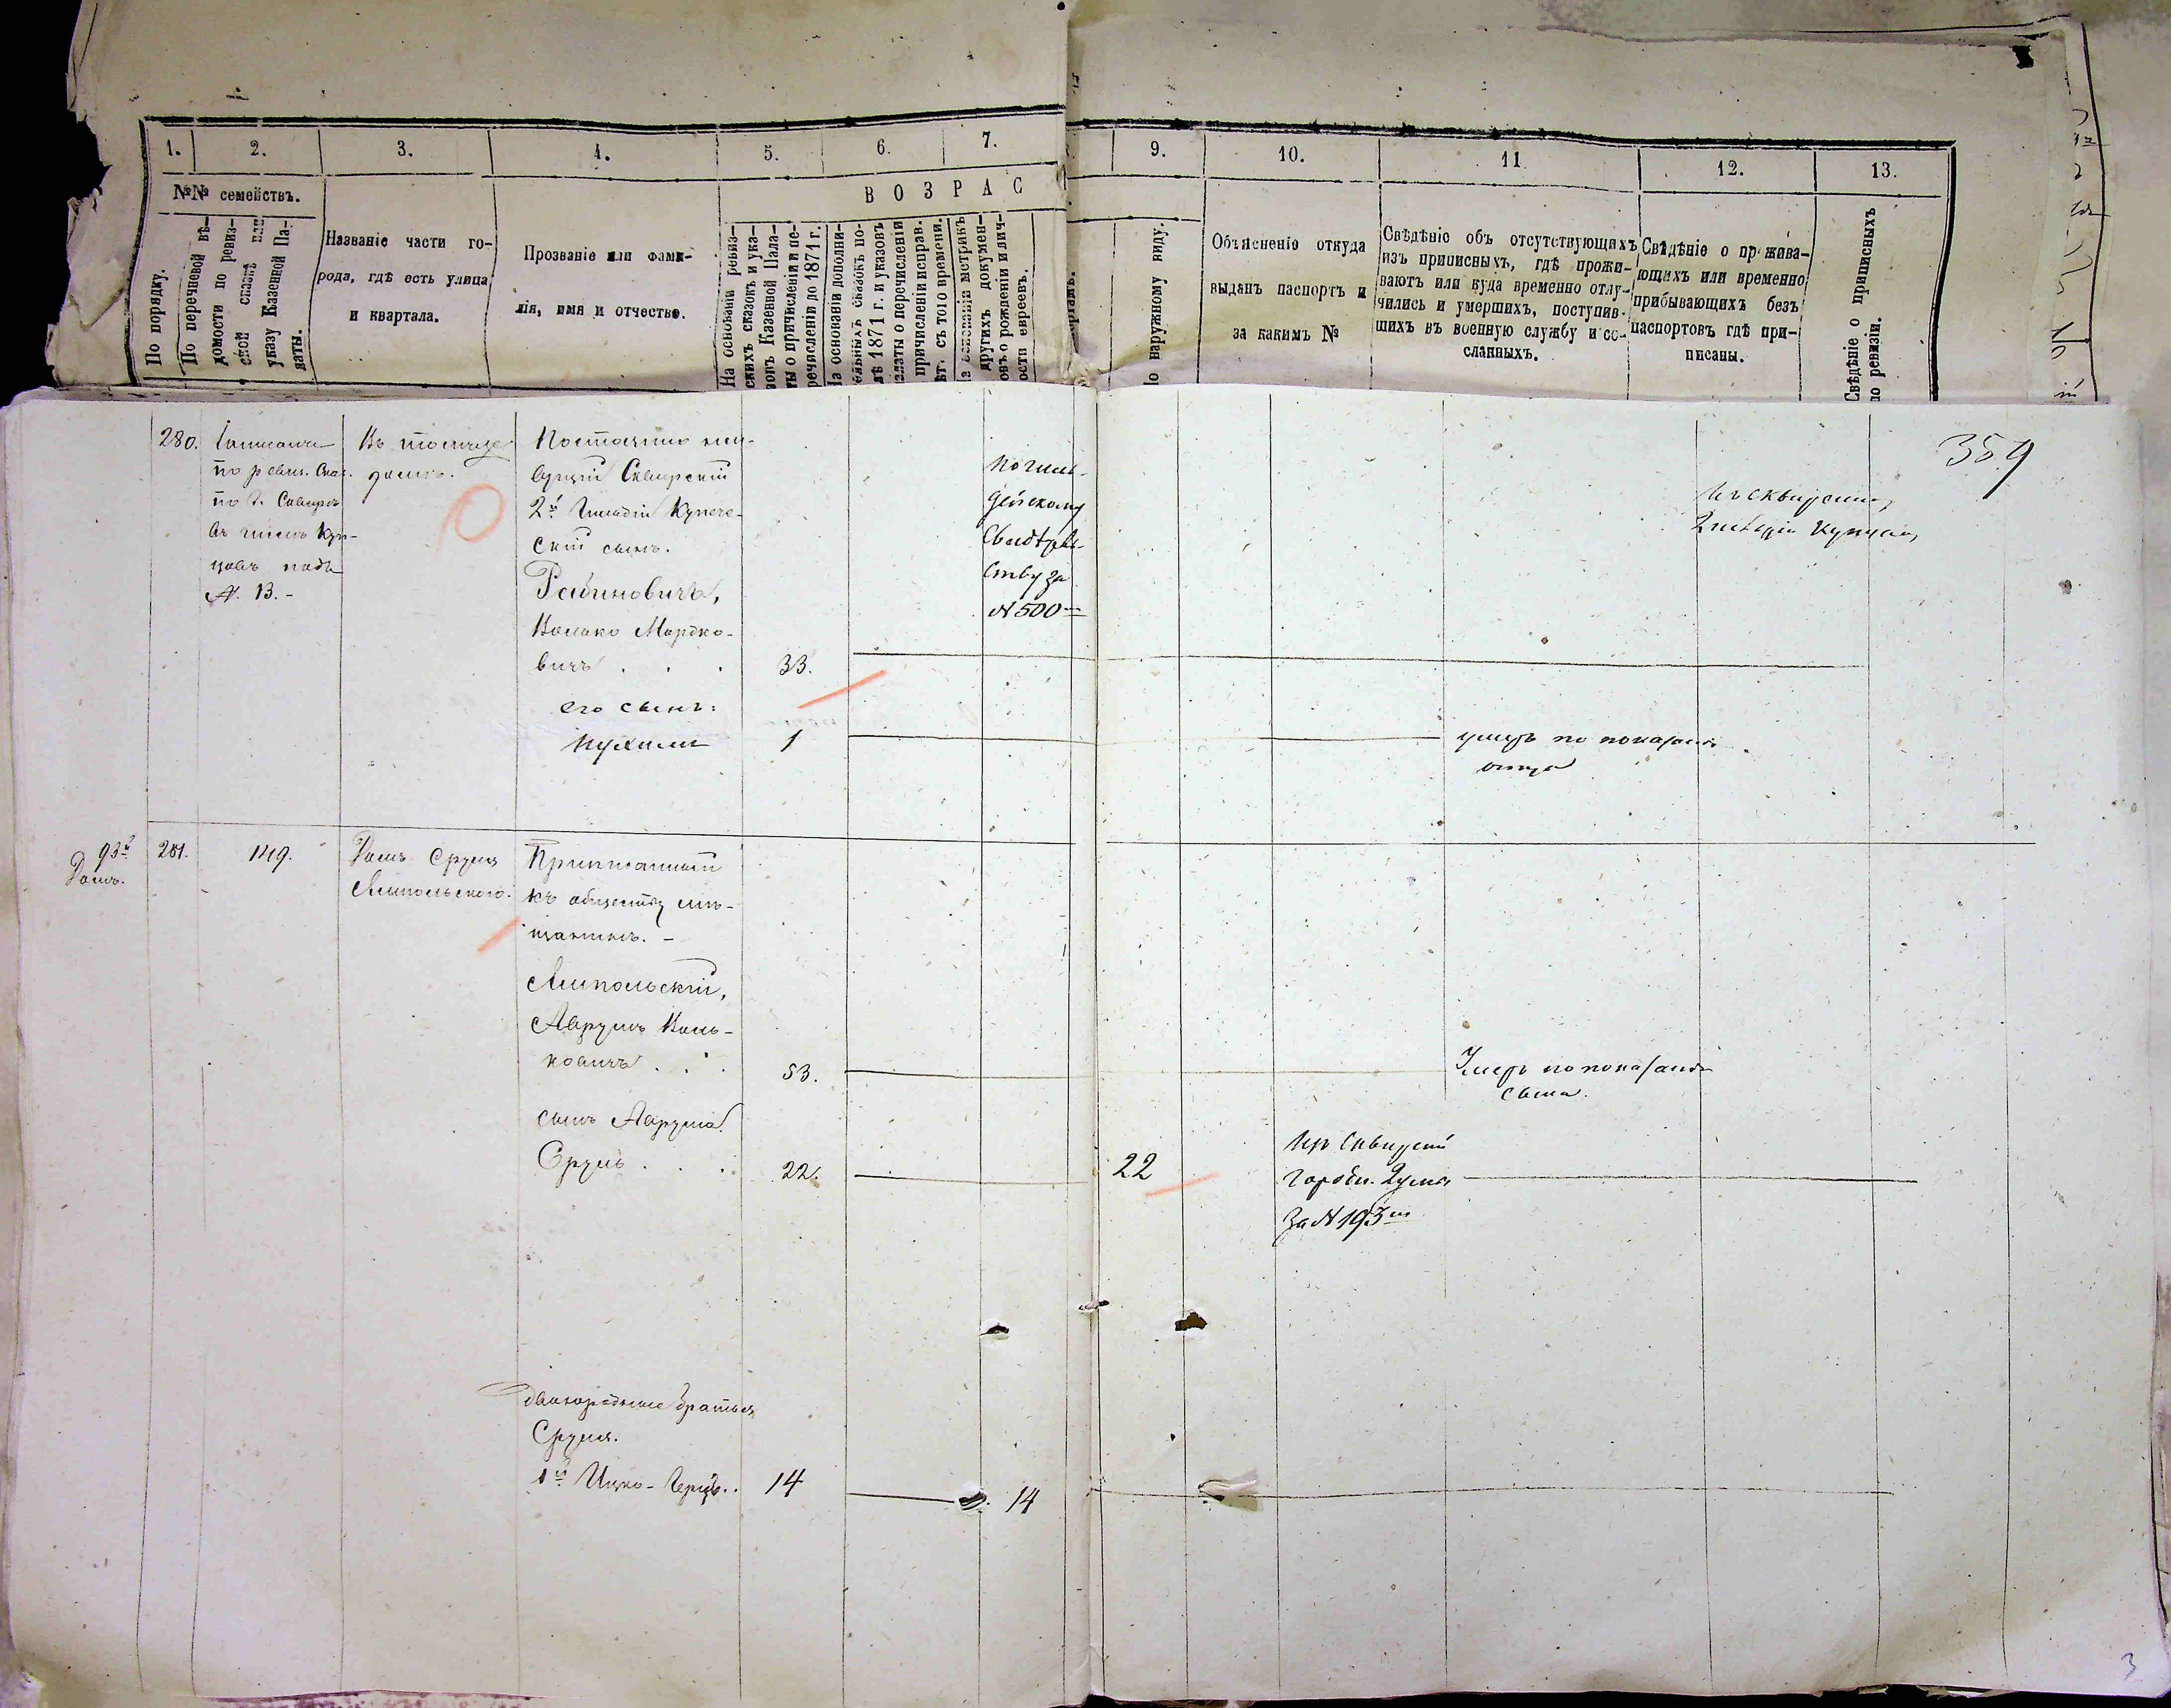 1.
2.
3.
4.
5.
6.
7.
9.
10.
11
12.
13.
№№ семействъ.
ВОЗРАС
По порядку.
По перечневой вѣ-
домости по ревиз-
ской
указу Казенной Па-
латы.
Названіе части го-
рода, гдѣ есть улица
и квартала.
Прозваніе или фами-
лія, имя и отчество.
На основаніи ревиз-
скихъ сказокъ и ука-
зовъ Казенной Пала-
ты о причисленіи и пе-
речисленіи до 1871 г.
На основаніи дополни-
тельныхъ сказокъ по-
слѣ 1871 г. и указовъ
Палаты о перечисленіи
причисленіи исправ.
съ того времени.
метрикъ
другихъ докумен-
товъ о рожденіи и лич-
ности евреевъ.
По наружному виду.
Объясненіе откуда
выданъ паспортъ и
за какимъ №
Свѣдѣніе объ отсутствующихъ
изъ приписныхъ, гдѣ прожи-
ваютъ или куда временно отлу-
чились и умершихъ, поступив-
шихъ въ военную службу и со-
сланныхъ.
Свѣдѣніе о прожива-
ющихъ или временно
прибывающихъ безъ
паспортовъ гдѣ при-
писаны.
Свѣдѣніе о приписныхъ
по ревизіи.
359
280.
по ревиз. Сказ.
по г. Сквирѣ
въ числѣ Куп-
цовъ подъ
№. 13.-
Въ
домѣ.
Постоянно жи-
вущій Сквирскій
2й Гильдіи Купече-
скій сынъ.
Рабиновичъ,
Волько Мордко-
вичъ . . .
33.
По гиль-
дейскому
Свидѣтель-
ству за
№ 500
Изъ сквирскихъ
2 гильдіи купцовъ
его сынъ:
1
умеръ по показанію
отца
93й
Домъ.
281.
149.
Домъ Сруля
Липольского.
Приписанный
къ обществу мѣ-
щанинъ. -
Липольскій,
АврумъВоль-
ковичъ . . .
53.
Умеръ по показанію
сына.
сынъ Аврума
Сруль . . .
22.
22
Изъ Сквирской
Городск. Думы
За № 193
двоюродные братья
Сруля.
1й Ицко-Герцъ. .
14
14
3